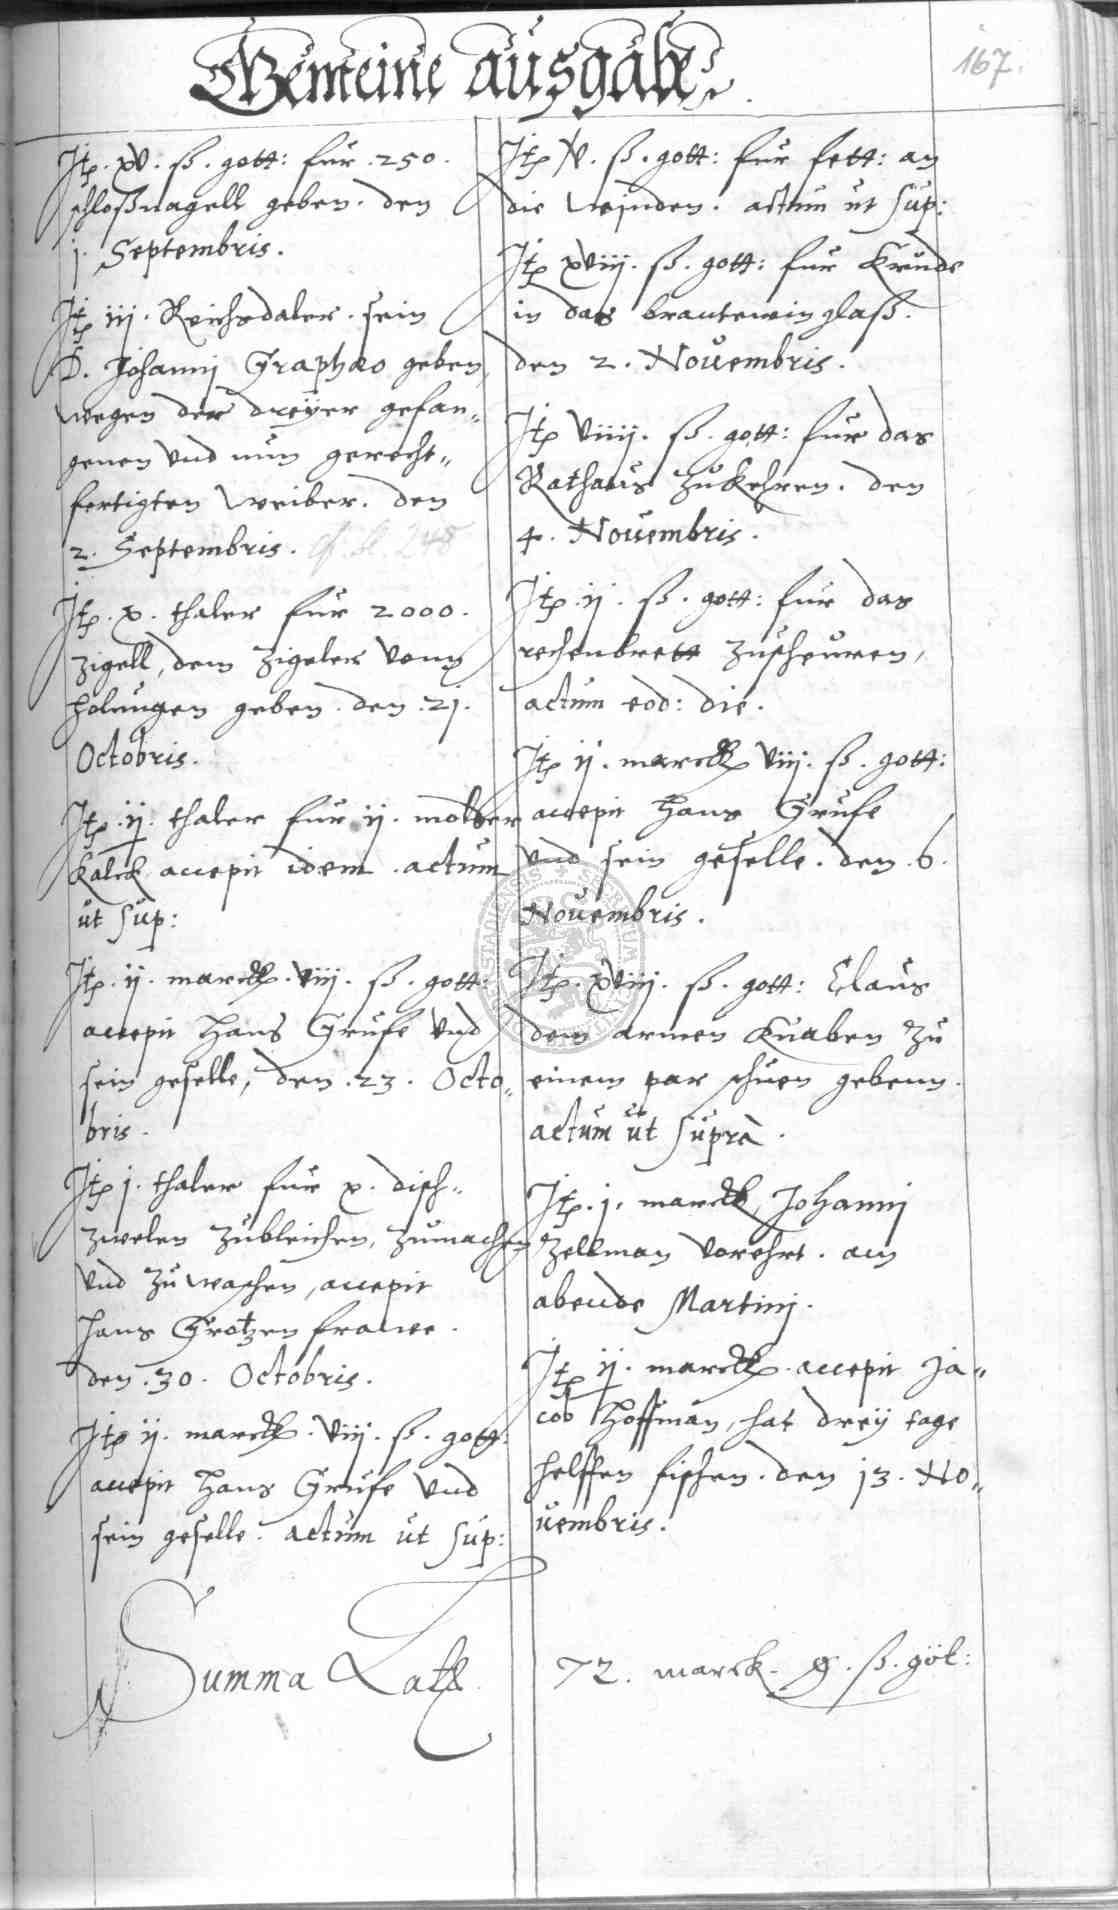 Gemeine ausgabe.
167.
Itp. xv. ß. gott: fur .250.
schloßnagell geben. den
j. Septembris.
Itp iij. Reichsdaler. sein
D. Johannj Graphæo geben,
wegen der dreÿer gefan„
genen vnd nun gerecht„
fertigten weiber. den
2. Septembris. cf. bl. 248
Itp. x. thaler fur 2000.
Zigell, dem Zigeler vonn
holtungen geben. den .21.
Octobris.
Itp. ij. thaler fur ij. molder
Kalck accepit idem. actum
ut sup:
Itp. ij. marck. viij. ß. gott:
accepit Hans Grufe vnd
sein geselle, den .23. Octo„
bris.
Itp j. thaler fur x. disch„
zwelen Zubleichen, Zumachen
vnd Zu waschen, accepit
Hans Grotzen frawe.
den .30. Octobris.
Itp ij. marck. viij. ß. gott:
accepit Hans Grufe vnd
sein geselle. actum ut sup:
Itp v. ß. gott: fur fett: an
die weinden. actum ut sup:
Itp xviij. ß. gott: fur Krude
in das brantewin glaß.
den 2. Nouembris.
Itp viiij. ß. gott: fur das
Rathaus Zukehren. den
4. Nouembris.
Itp. ij. ß. gott: fur das
rechenbrett Zuscheuren,
actum eod: die.
Itp ij. marck viij. ß. gott:
accepit Hans Grufe
vnd sein geselle. den .6.
Nouembris.
Itp. xviij. ß. gott: Claus
dem armen Knaben Zu
einem par schuen gebenn.
actum ut suprà.
Itp. j. marck, Johannj
Zellman vorehrt. am
abende Martinj.
Itp ij. marck. accepit Ja„
cob Hoffman, hat dreÿ tage
helffen fischen. den 13. No„
uembris.
Summa Late 72. marck. 9. ß. göt: